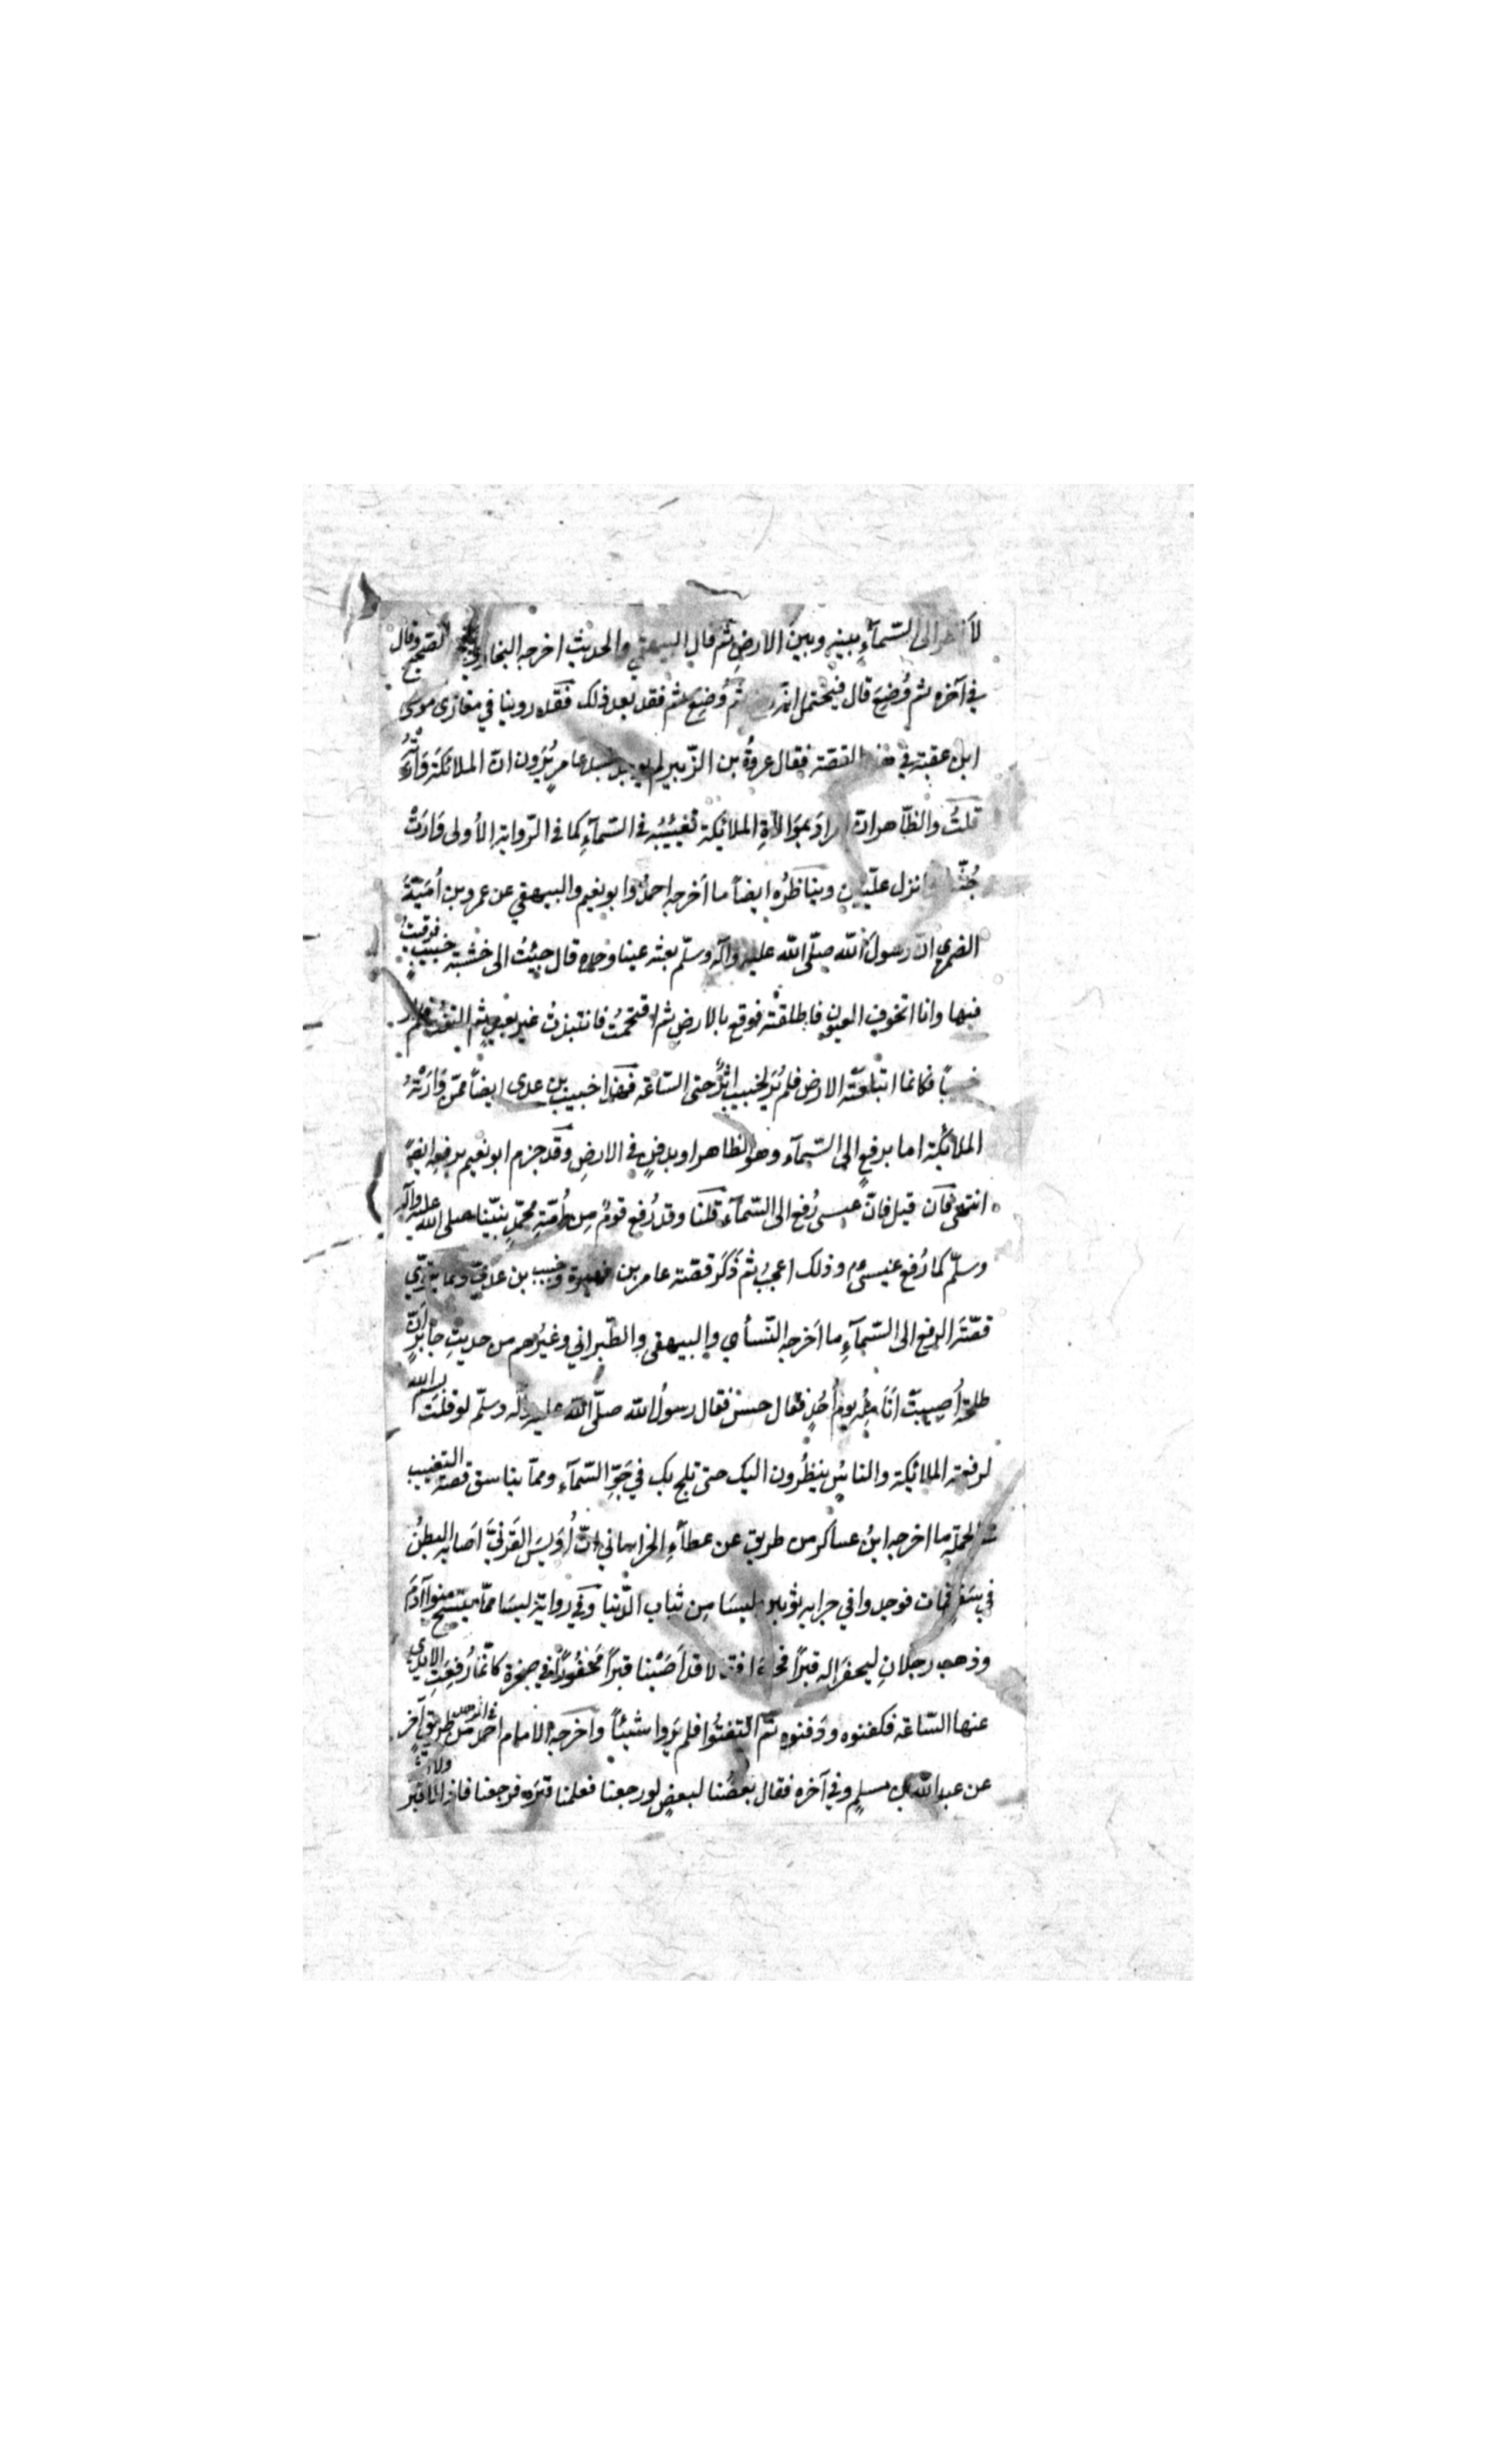 لأنظر الى السّمآءِ بينه وبين الارضِ ثم قال البيهقي والحديث اخرجه البخاري في الصحيح وقال
في آخره ثم وُضِعَ قال فيحتمل انه ثم وُضِعَ ثم فقد بعد ذلك فقد روينا في مغازى موسى
ابن عقبة في هذه القصّة فقال عروةُ بن الزّبير لم يوجد جسد عامر يُرَون انّ الملائكة وَارَتْهُ
قلتُ والظّاهر انّ المراد بموَالاةِ الملائكة تغييبُه في السّمآءِ كما في الرّواية الأولى وَارَتْ
جُثّته وانزل علّيّين ويناظرُه ايضاً ما اَخرجه احمدُ وابو نعيم والبيهقي عن عمرو بن اُمَيّةَ
الضمري انّ رسولَ الله صلّى الله عليه وآله وسلّم بعثه عينا وحده قال جِئتُ الى خشبة خبيبٍ فرقيتُ
فيها وانا اتخوف العيون فاطلقته فوقع بالارضِ ثم اقتحمتُ فانتبذتُ غير بعيدٍ ثم التفتُ فلم أر
خبيباً فكانما ابتلعته الارض فلم يُرَ لخبيبٍ اثرٌ حتى السّاعة فهذا خبيب بن عدى ايضاً ممّن وَارَتْهُ
الملائكة اما برفعٍ الى السّمآء وهو الظاهر او بدفنٍ في الارضِ وقد جزم ابو نعيم برفعه ايضاً
انتهى فان قيل فانّ عيسى رُفع الى السّمآء قلنا وقد رُفع قومٌ مِن اُمّةِ محمّدٍ نبيّنا صلى الله عليه وآله
وسلّم كما رُفع عيسىٰ م وذلك اعجبُ ثم ذَكَر قصّة عامر بن فهيرة وخبيب بن عديّ ومما يقوّي
قصّةَ الرفع الى السّمآءِ ما اَخرجه النّسأي والبيهقى والطّبراني وغيرُهم من حديثِ جابرٍ اَنّ
طلحةَ اُصِيبتْ اَنَامِلُه يومَ اُحُدٍ فقال حسّ فقال رسولُ الله صلّى الله عليه وآله وسلّم لو قلتَ بسم الله
لرفعته الملائكة والناسُ ينظُرون اليك حتى تلج بك في جَوِّ السّمآء وممّا يناسق قصة التغييب
في الجملة ما اخرجه ابنُ عساكر من طريق عن عطآءِ الخراساني انّ اُوَيسَ القَرَنيَّ اَصابه البطنُ
في سَفرٍ فمات فوجدوا في جرابه ثوبين ليسَا مِن ثياب الدّنيا وفي رواية ليسَا ممّا ينسج بنوآ آدَمَ
وذهب رجلانِ ليحفرَا له قبرًا فجاءَا فقالا قد اَصَبْنا قبرًا مَحْفُورًا في صخرة كانّما رُفِعَتِ الايدي
عنها السّاعة فكفنوه ودَفنوه ثمّ التفتُوا فلم يَروا شيئاً واَخرَجه الامام احمد في الزهد من طريقٍ آخر
عن عبد الله بن مسلمٍ وفي آخره فقال بعضُنا لبعضٍ لو رجعنا فعلمنا قبرَه فرجعنا فاذا لا قبر ولا اثر